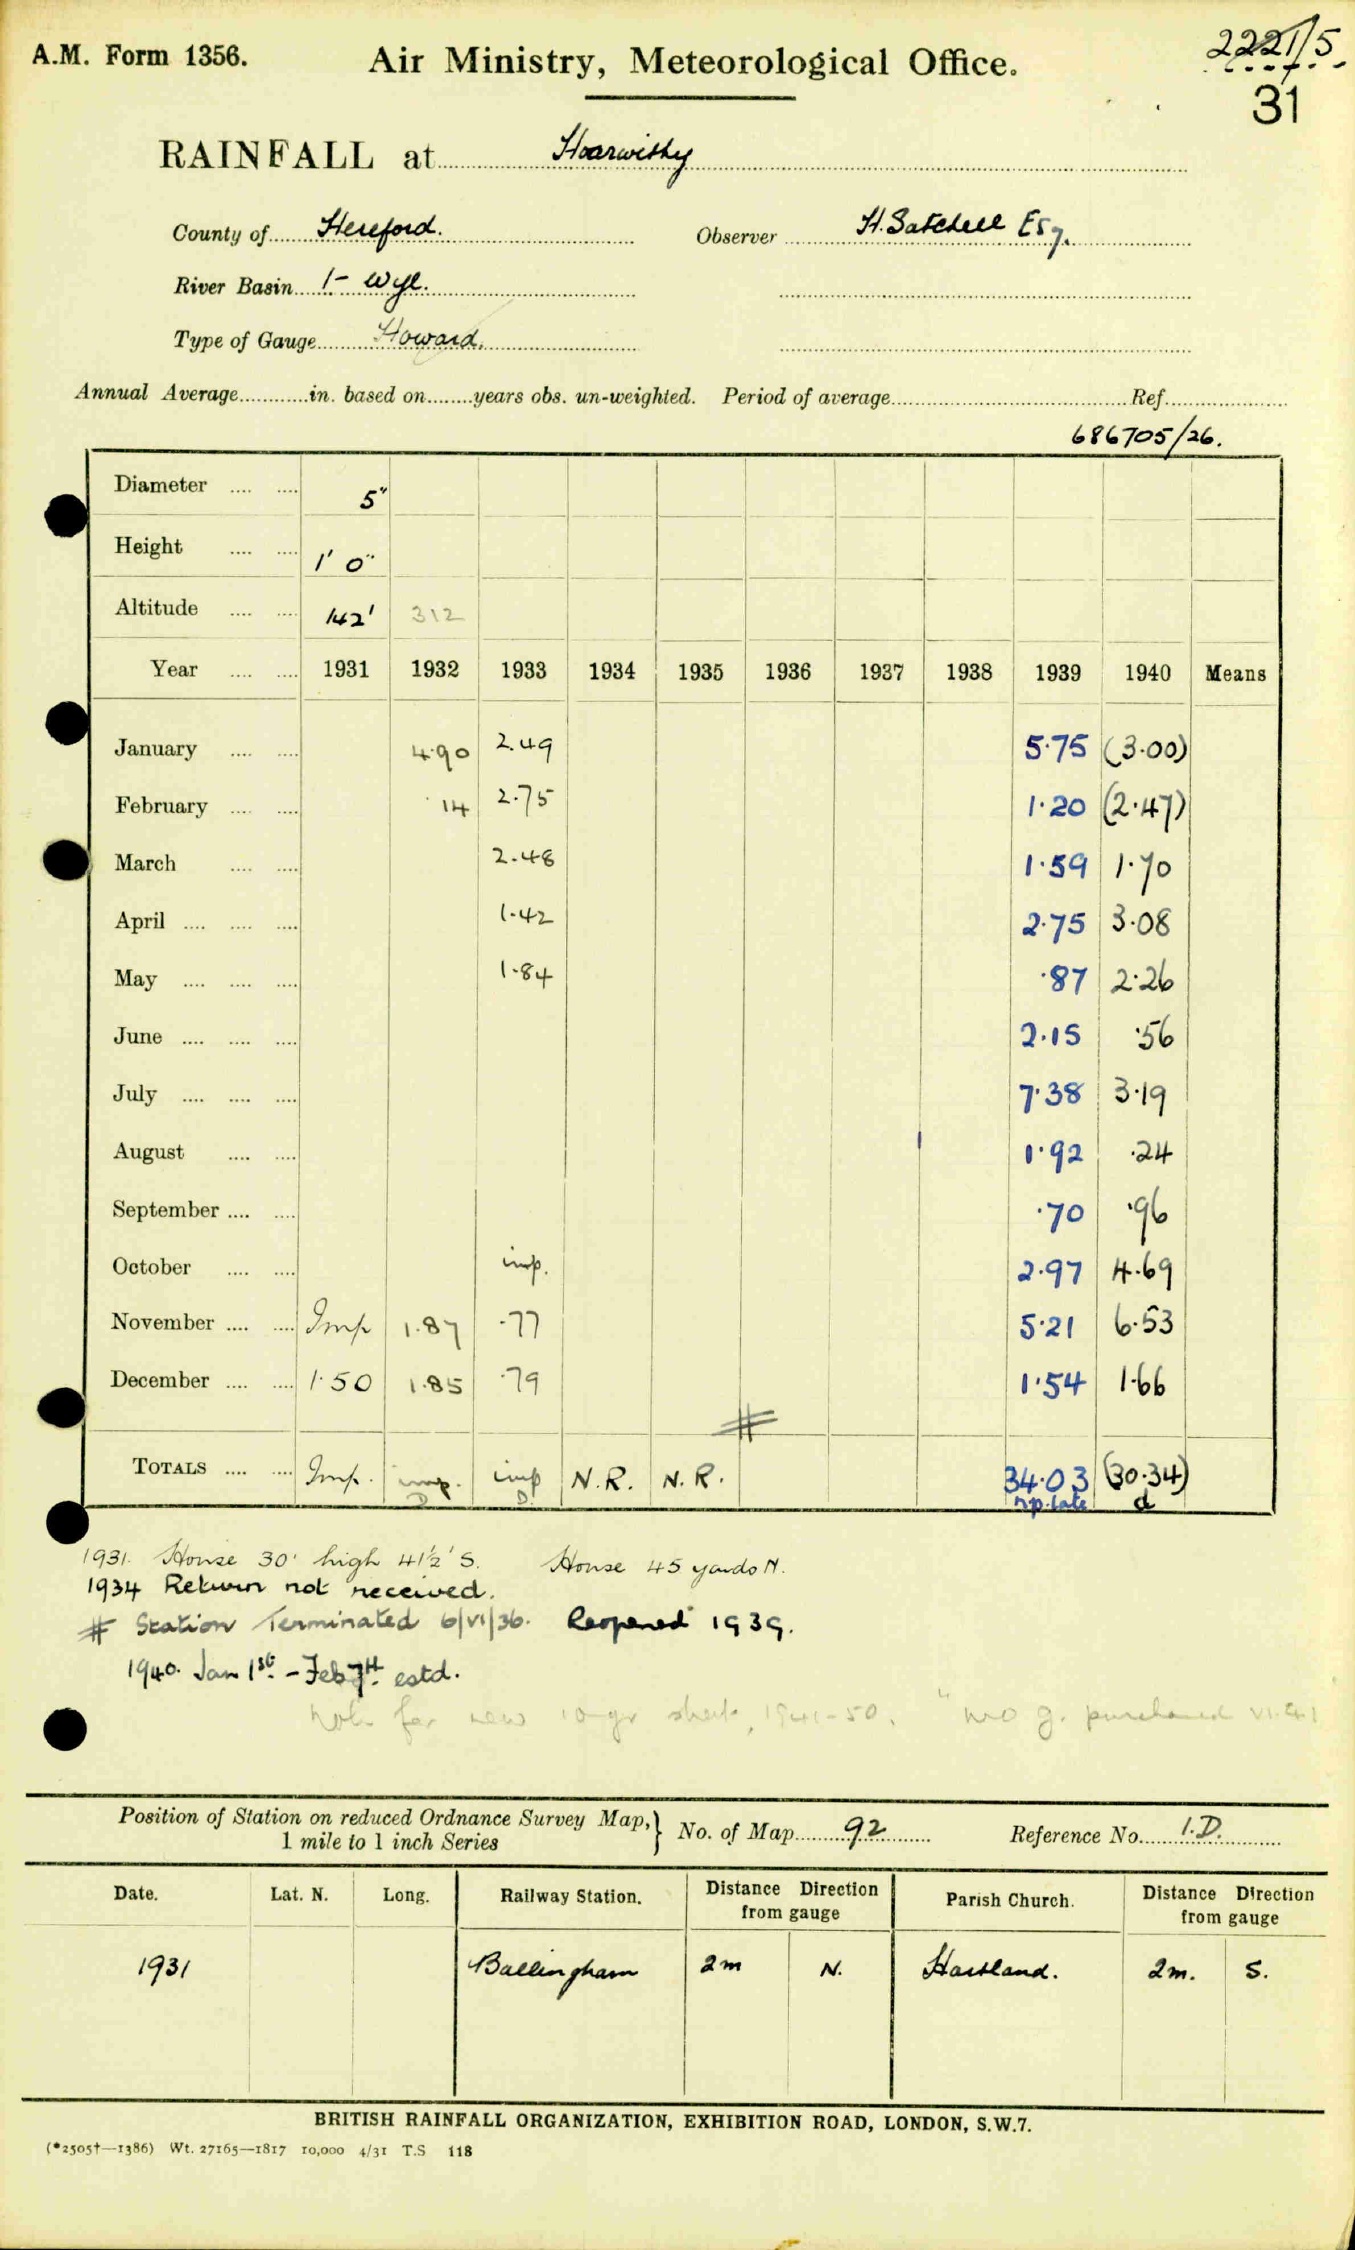 A.M. Form 1356.
Air Ministry, Meteorological Office.
2221/5
31
RAINFALL at Hoarwithy
County of Hereford. Observer H. Satchell Esq.
River Basin 1- Wye.
Type of Gauge Howard.
Annual Average............in. based on........years obs. un-weighted. Period of average............Ref............
686705/26.
Diameter .... .... 5"
Height .... .... 1' 0"
Altitude .... .... 142' 312
Year .... .... 1931 1932 1933 1934 1935 1936 1937 1938 1939 1940 Means
January .... .... 4.90 2.49 5.75 (3.00)
February .... .... .14 2.75 1.20 (2.47)
March .... .... 2.48 1.59 1.70
April .... .... .... 1.42 2.75 3.08
May .... .... .... 1.84 .87 2.26
June .... .... .... 2.15 .56
July .... .... .... 7.38 3.19
August .... .... 1.92 .24
September .... .... .70 .96
October .... .... imp. 2.97 4.69
November .... .... Imp 1.87 .77 5.21 6.53
December .... .... 1.50 1.85 .79 1.54 1.66
#
TOTALS .... .... Imp. imp. imp N.R. N.R. 34.03 (30.34)
D D. n.p. late d
1931. House 30' high 41½' S. House 45 yards N.
1934 Return not received.
# Station Terminated 6/VI/36. Reopened 1939.
1940. Jan 1st. - Feb 7th. estd.
Note for new 10-yr sheet, 1941-50. "MO g. purchased VI.41
Position of Station on reduced Ordnance Survey Map,} No. of Map 92 Reference No. 1.D.
1 mile to 1 inch Series
Date. Lat. N. Long. Railway Station. Distance Direction from gauge Parish Church. Distance Direction from gauge
1931 Ballingham 2m N. 2m. S.
BRITISH RAINFALL ORGANIZATION, EXHIBITION ROAD, LONDON, S.W.7.
(*2505†—1386) Wt. 27165—1817 10,000 4/31 T.S 118